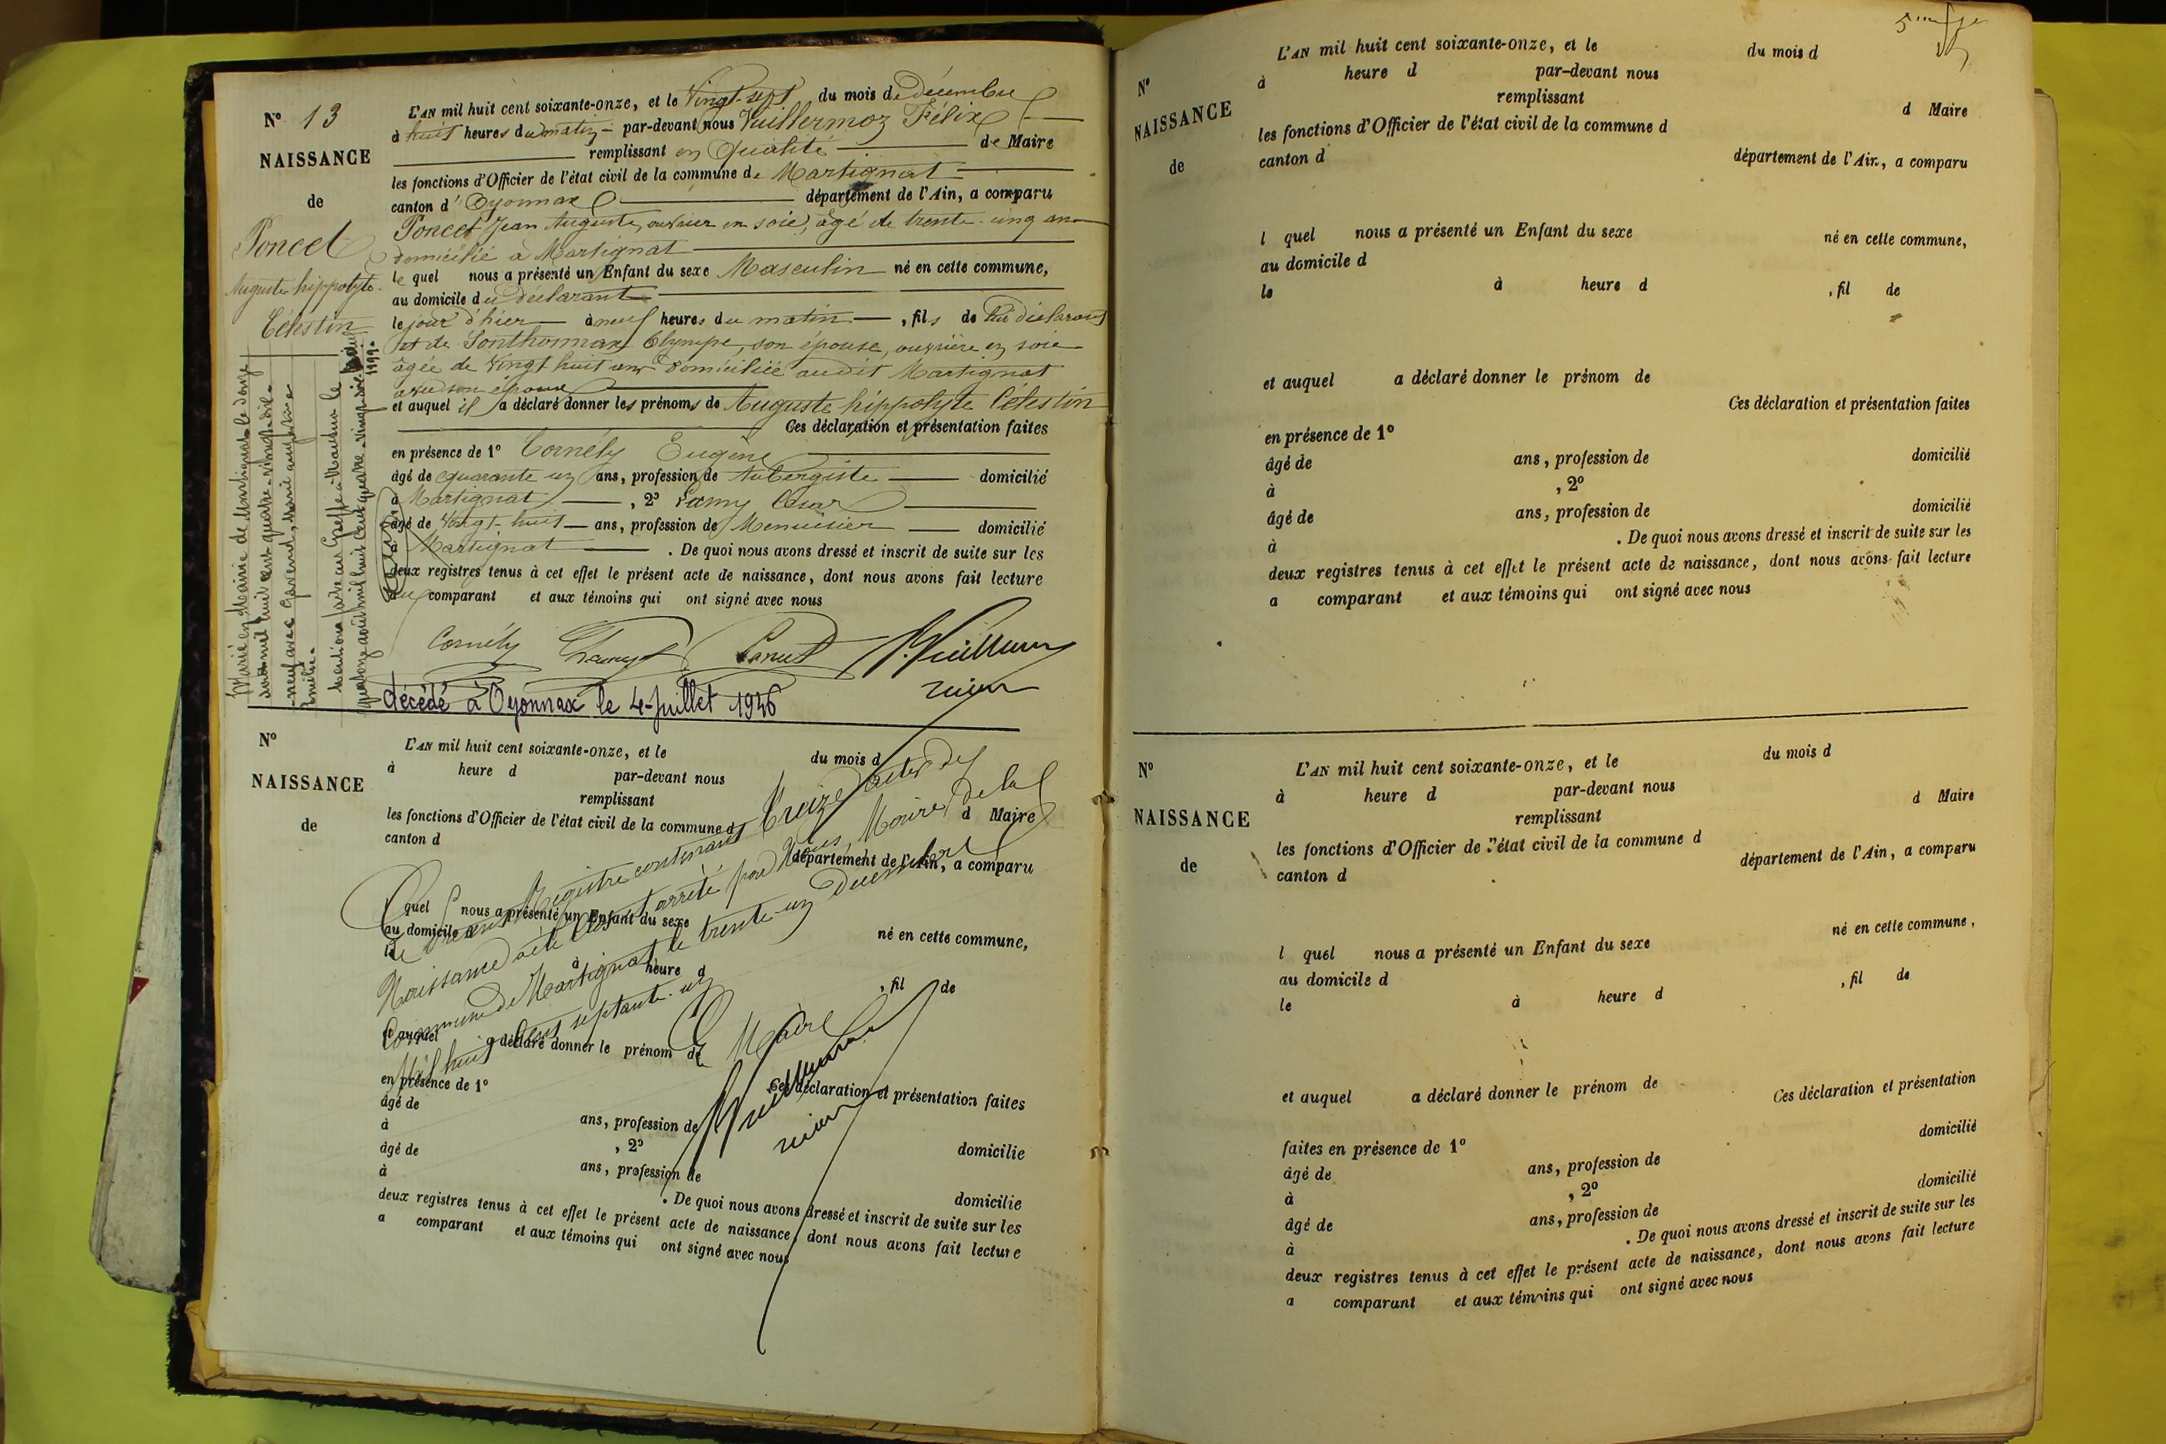 N° 13
NAISSANCE
de
Poncet
Auguste hippolyte
Célestin
L'AN mil huit cent soixante-onze, et le Vingt-sept du mois de Décembre
à huit heures du matin par-devant nous Vuillermoz Félix
remplissant en qualité de Maire
les fonctions d'Officier de l'état civil de la commune de Martignat
canton d'Oyonnax département de l'Ain, a comparu
Poncet Jean Auguste, ouvrier en soie, âgé de trente-cinq ans
domicilié à Martignat
le quel nous a présenté un Enfant du sexe Masculin né en cette commune,
au domicile du déclarant
le jour d'hier à neuf heures du matin, fils de lui déclarant
et de Sonthonnax Olympe, son épouse, ouvrière en soie
âgée de Vingt huit ans domiciliée audit Martignat
avec son époux
et auquel il a déclaré donner les prénoms de Auguste hippolyte Célestin
Ces déclaration et présentation faites
en présence de 1° Cornély Eugène
âgé de quarante un ans, profession de Aubergiste domicilié
à Martignat, 2° Lamy César
âgé de Vingt-huit ans, profession de Menuisier domicilié
à Martignat. De quoi nous avons dressé et inscrit de suite sur les
deux registres tenus à cet effet le présent acte de naissance, dont nous avons fait lecture
au comparant et aux témoins qui ont signé avec nous
Cornély Lamy Poncet Vuillermoz
maire
Marié en Mairie de Martignat le douze
août mil huit cent quatre-vingt-dix-
-neuf avec
Emélie.
Mention faite au Greffe à Nantua le
quatorze août mil huit cent quatre-vingt-dix-neuf
1899.
décédé à Oyonnax le 4 Juillet 1946
N°
NAISSANCE
de
L'AN mil huit cent soixante-onze, et le du mois d
à heure d par-devant nous
remplissant d Maire
les fonctions d'Officier de l'état civil de la commune d
canton d département de l'Ain, a comparu
l quel nous a présenté un Enfant du sexe né en cette commune,
au domicile d
le à heure d, fil de
et auquel a déclaré donner le prénom de
Ces déclaration et présentation faites
en présence de 1°
âgé de ans, profession de domicilié
à, 2°
âgé de ans, profession de domicilié
à. De quoi nous avons dressé et inscrit de suite sur les
deux registres tenus à cet effet le présent acte de naissance, dont nous avons fait lecture
a comparant et aux témoins qui ont signé avec nous
Le présent Registre contenant treize actes de
Naissance a été clos et arrêté par Nous Maire de la
Commune de Martignat le trente-un Décembre
Mil huit cent septante-un
Le Maire
Vuillermoz
maire
N°
NAISSANCE
de
L'AN mil huit cent soixante-onze, et le du mois d
à heure d par-devant nous
remplissant d Maire
les fonctions d'Officier de l'état civil de la commune d
canton d département de l'Ain, a comparu
l quel nous a présenté un Enfant du sexe né en cette commune,
au domicile d
le à heure d, fil de
et auquel a déclaré donner le prénom de
Ces déclaration et présentation faites
en présence de 1°
âgé de ans, profession de domicilié
à, 2°
âgé de ans, profession de domicilié
à. De quoi nous avons dressé et inscrit de suite sur les
deux registres tenus à cet effet le présent acte de naissance, dont nous avons fait lecture
a comparant et aux témoins qui ont signé avec nous
N°
NAISSANCE
de
L'AN mil huit cent soixante-onze, et le du mois d
à heure d par-devant nous
remplissant d Maire
les fonctions d'Officier de l'état civil de la commune d
canton d département de l'Ain, a comparu
l quel nous a présenté un Enfant du sexe né en cette commune,
au domicile d
le à heure d, fil de
et auquel a déclaré donner le prénom de
Ces déclaration et présentation
faites en présence de 1° domicilié
âgé de ans, profession de
à, 2° domicilié
âgé de ans, profession de
à. De quoi nous avons dressé et inscrit de suite sur les
deux registres tenus à cet effet le présent acte de naissance, dont nous avons fait lecture
a comparant et aux témoins qui ont signé avec nous